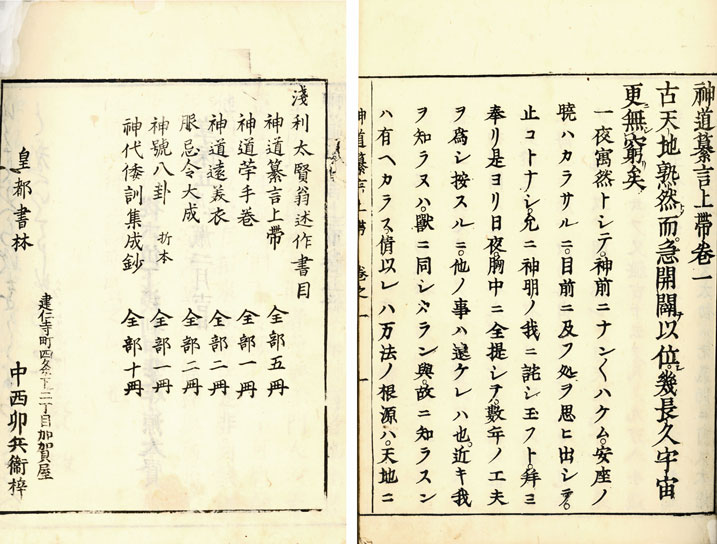 神道纂言上帶卷一
古天地孰然而。急開闢以位。幾長久宇宙
更無窮矣
一夜寓然トシテ。神前ニナン〳〵ハケム。安座ノ
曉ハカラサルニ。目前ニ及フ処ヲ思ヒ出シテ。
止コトナシ。允ニ神明ノ我ニ詫シ玉フト。拜ミ
奉リ是ヨリ日夜。胸中ニ全提シテ。數年ノ工夫
ヲ爲シ按スルニ。他ノ事ハ遠ケレハ也。近キ我
ヲ知ラヌハ。獸ニ同シラン與。故ニ知ラスン
ハ有ヘカラス。倩以レハ万法ノ根源ハ。天地ニ
神道纂言上帶 卷之一 一
淺利太賢翁述作書目
神道纂言上帶 全部五冊
神道榮手卷 全部一冊
神道遠美衣 全部二冊
服忌令大成 全部二冊
神號八卦 折本 全部一冊
神代倭訓集成鈔 全部十冊
皇都書林
建仁寺町四条下ル二丁目加賀屋
中西卯兵衞梓